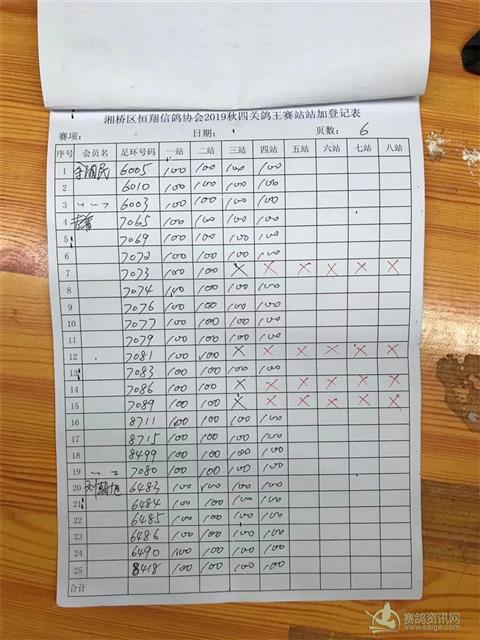 湘桥区恒翔信鸽协会2019秋四关鸽王赛站站加登记表
赛项: 日期: 页数: 6
序号 会员名 足环号码 一站 二站 三站 四站 五站 六站 七站 八站
1 6005 100 100 100 100
2 6010 100 100 100 100
3 6003 100 100 100 100
4 7065 100 100 100 100
5 7069 100 100 100 100
6 7072 100 100 100 100
7 7073 100 100 X X X X X X
8 7074 100 100 100 100
9 7076 100 100 100 100
10 7077 100 100 100 100
11 7079 100 100 100 100
12 7081 100 100 X X X X X X
13 7083 100 100 100 100
14 7086 100 100 X X X X X X
15 7089 100 100 X X X X X X
16 8711 100 100 100 100
17 8715 100 100 100 100
18 8499 100 100 100 100
19 7080 100 100 100 100
20 6483 100 100 100 100
21 6484 100 100 100 100
22 6485 100 100 100 100
23 6486 100 100 100 100
24 6490 100 100 100 100
25 8418 100 100 100 100
合计
赛鸽资讯网
www.saige.com